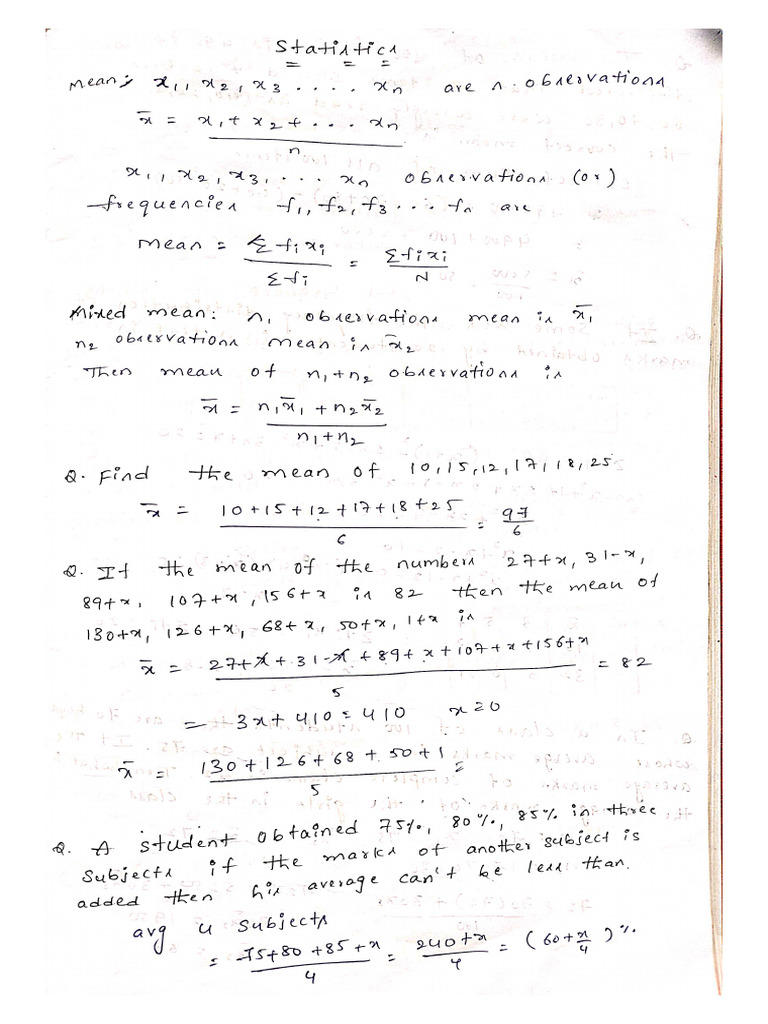 Statistics
mean: x₁, x₂, x₃ .... xₙ are n observations
x̄ = x₁ + x₂ + ... xₙ / n
x₁, x₂, x₃, ... xₙ observations (or)
frequencies f₁, f₂, f₃ ... fₙ are
mean = Σfᵢxᵢ / Σfᵢ = Σfᵢxᵢ / N
Mixed mean: n₁ observations mean is x̄₁
n₂ observations mean is x̄₂
Then mean of n₁+n₂ observations is
x̄ = n₁x̄₁ + n₂x̄₂ / n₁+n₂
Q. Find the mean of 10, 15, 12, 17, 18, 25
x̄ = 10+15+12+17+18+25 / 6 = 97/6
Q. If the mean of the numbers 27+x, 31-x,
89+x, 107+x, 156+x is 82 then the mean of
130+x, 126+x, 68+x, 50+x, 1+x is
x̄ = 27+x+31-x+89+x+107+x+156+x / 5 = 82
= 3x+410=410 x=0
x̄ = 130+126+68+50+1 / 5 =
Q. A student obtained 75%, 80%, 85% in three
subjects if the marks of another subject is
added then his average can't be less than.
avg 4 subjects
= 75+80+85+x / 4 = 240+x / 4 = (60+x/4)%